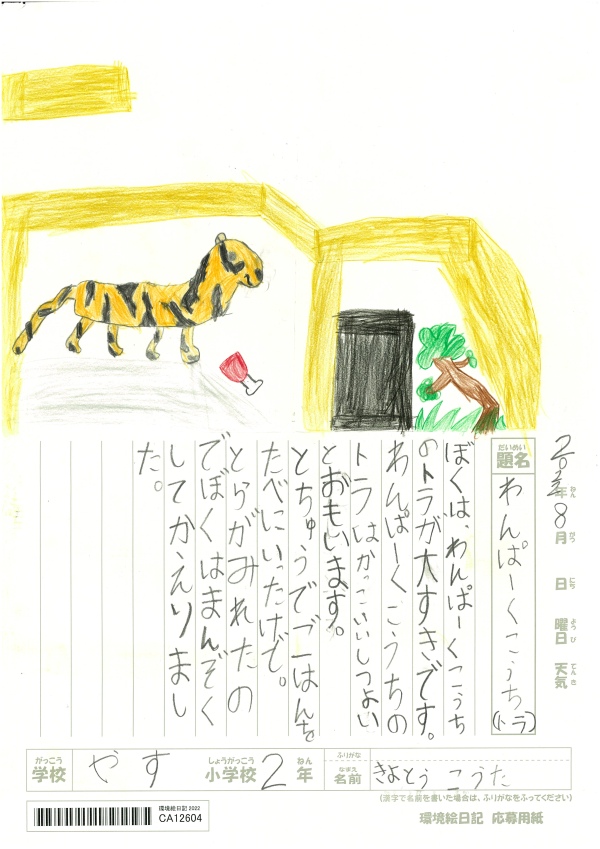 年 8月 日 曜日 天気
ねん がつ にち ようび てんき
だいめい
題名 わんぱーくこうち(トラ)
ぼくは、わんぱーくこうち
のトラが大すきです。
わんぱーくこうちの
トラはかっこいいしつよい
とおもいます。
とちゅうでごはんを
たべにいったけで。
とらがみれたの
でぼくはまんぞく
してかえりまし
た。
がっこう しょうがっこう ねん ふりがな
学校 やす 小学校 2年 なまえ 名前 きよとう こうた
(漢字で名前を書いた場合は、ふりがなをふってください)
環境絵日記 2022
CA12604
環境絵日記 応募用紙